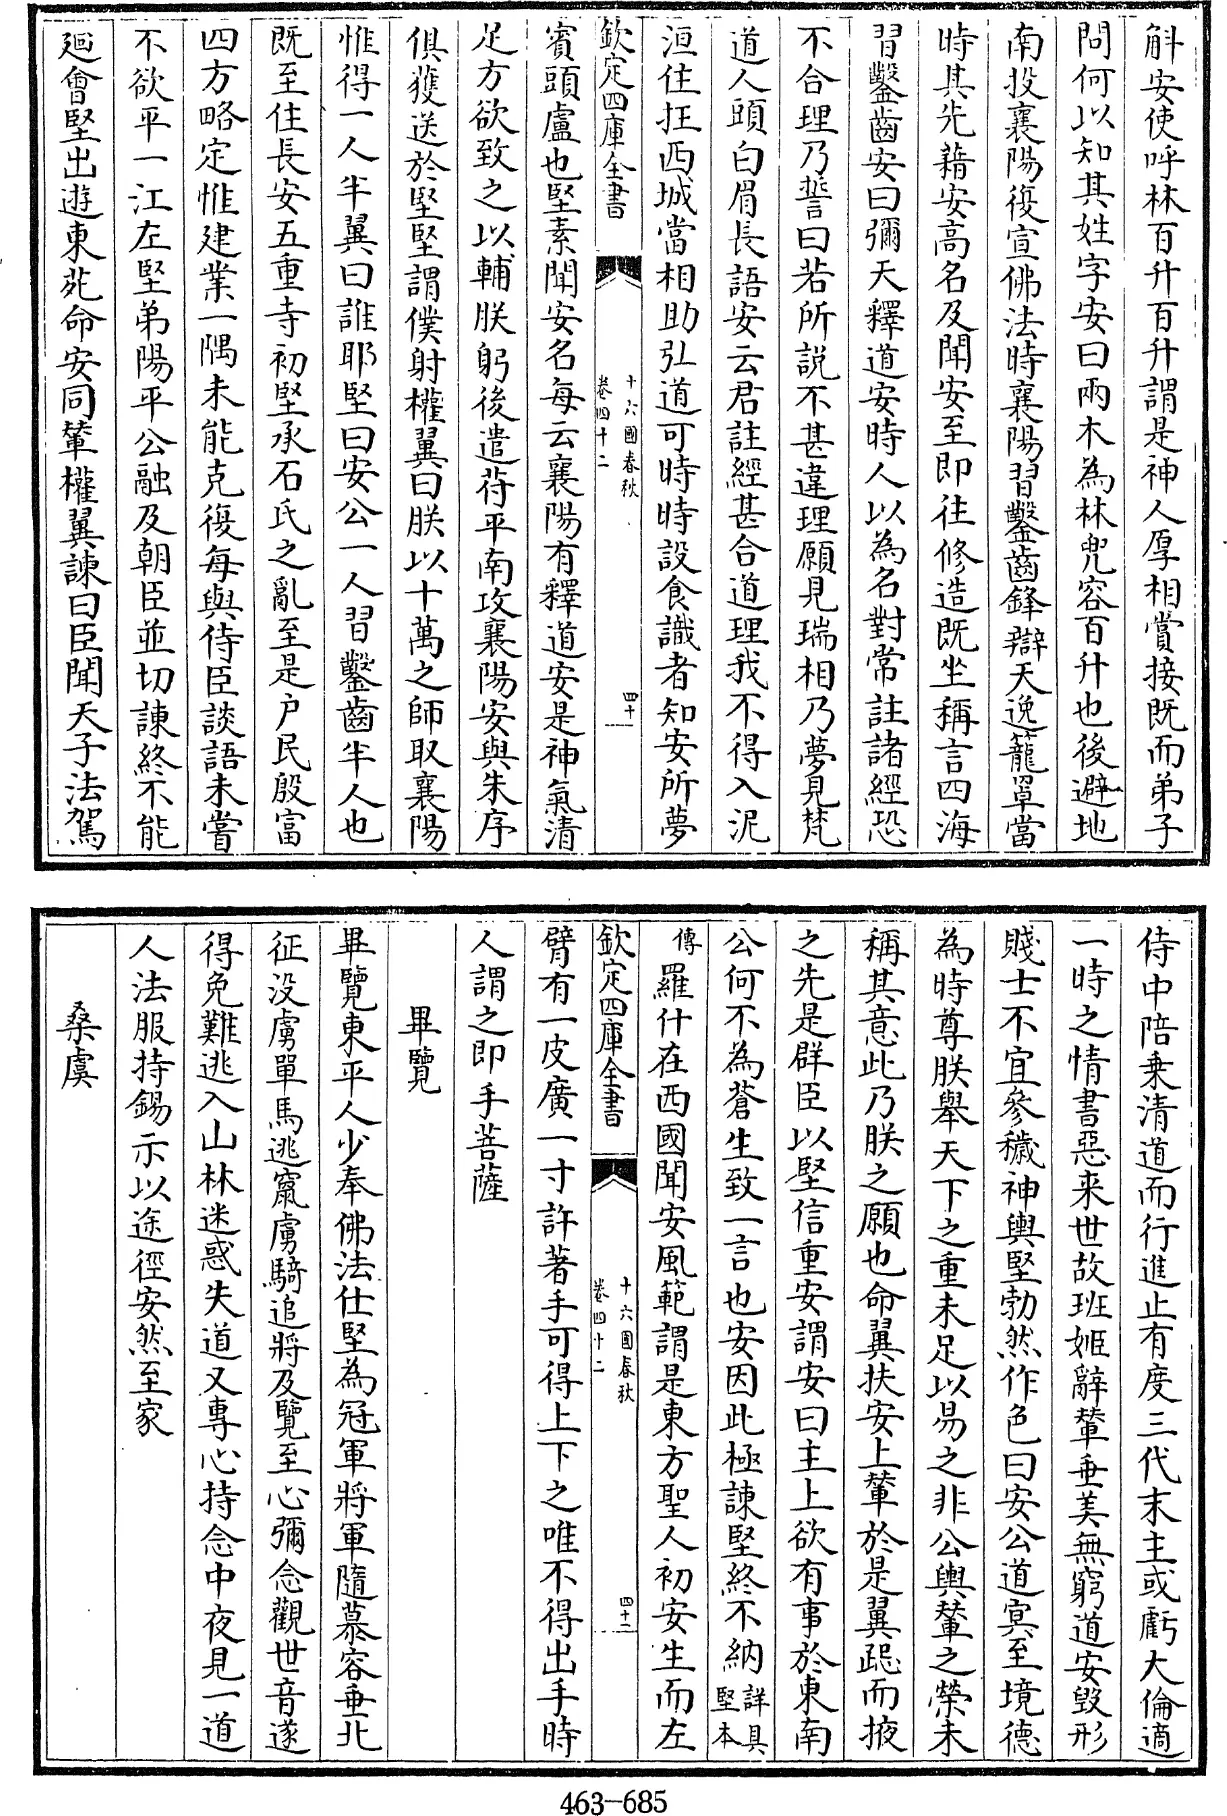 斛安使呼林百升百升謂是神人厚相賞接既而弟子
問何以知其姓字安曰兩木為林兜容百升也後避地
南投襄陽復宣佛法時襄陽習鑿齒鋒辯天逸籠罩當
時其先藉安高名及聞安至即往修造既坐稱言四海
習鑿齒安曰彌天釋道安時人以為名對常註諸經恐
不合理乃誓曰若所説不甚違理願見瑞相乃夢見梵
道人頭白眉長語安云君註經甚合道理我不得入泥
洹住在西城當相助弘道可時時設食識者知安所夢
欽定四庫全書
十六國春秋
卷四十二
四十一
賓頭盧也堅素聞安名每云襄陽有釋道安是神氣清
足方欲致之以輔朕躬後遣苻平南攻襄陽安與朱序
俱獲送於堅堅謂僕射權翼曰朕以十萬之師取襄陽
惟得一人半翼曰誰耶堅曰安公一人習鑿齒半人也
既至住長安五重寺初堅承石氏之亂至是户民殷富
四方略定惟建業一隅未能克復每與侍臣談語未嘗
不欲平一江左堅弟陽平公融及朝臣並切諫終不能
廻會堅出遊東苑命安同輦權翼諫曰臣聞天子法駕
侍中陪乗清道而行進止有度三代末主或虧大倫適
一時之情書惡来世故班姬辭輦垂美無窮道安毀形
賤士不宜參穢神輿堅勃然作色曰安公道冥至境德
為時尊朕舉天下之重未足以易之非公輿輦之榮未
稱其意此乃朕之願也命翼扶安上輦於是翼跽而掖
之先是群臣以堅信重安謂安曰主上欲有事於東南
公何不為蒼生致一言也安因此極諫堅終不納詳具堅本
傳羅什在西國聞安風範謂是東方聖人初安生而左
欽定四庫全書
十六國春秋
卷四十二
四十二
臂有一皮廣一寸許著手可得上下之唯不得出手時
人謂之即手菩薩
畢覽
畢覽東平人少奉佛法仕堅為冠軍將軍隨慕容垂北
征没虜單馬逃竄虜騎追將及覽至心彌念觀世音遂
得免難逃入山林迷惑失道又專心持念中夜見一道
人法服持錫示以途徑安然至家
桑虞
463-685